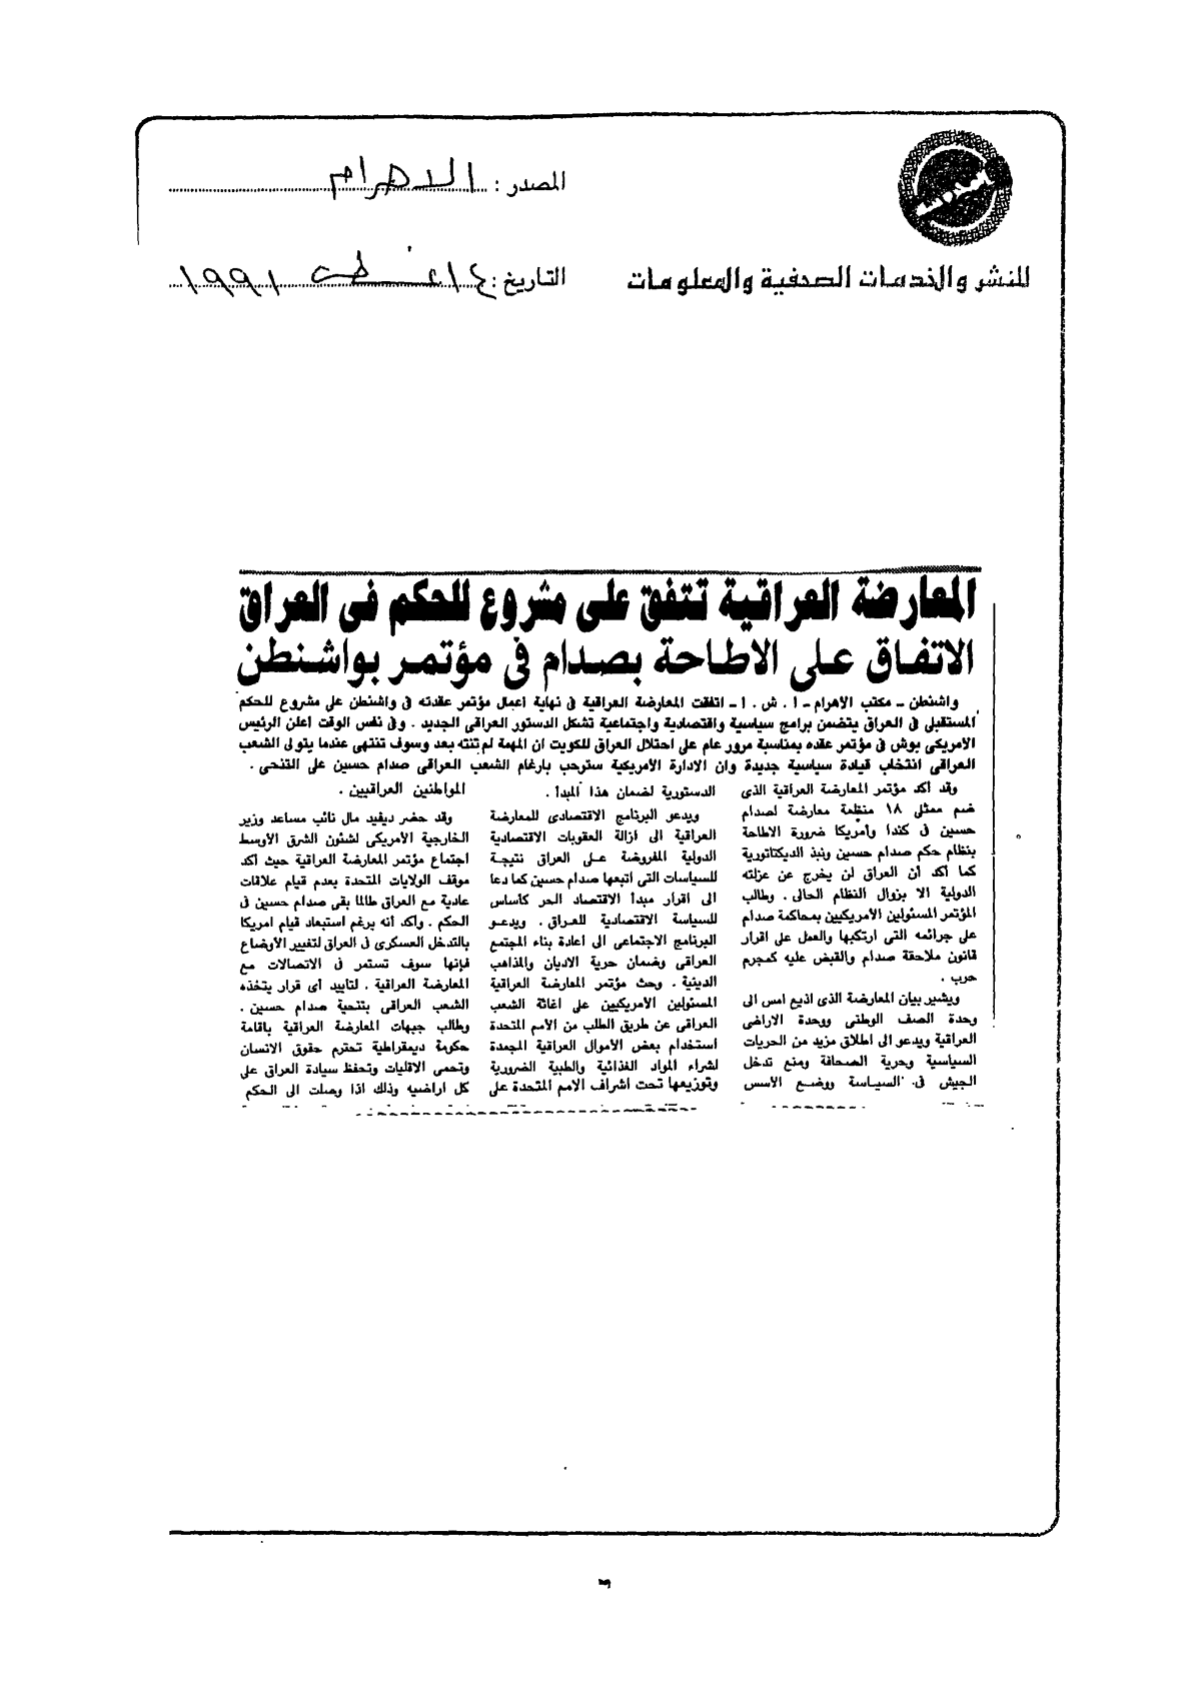 المصدر : الاهرام
للنشر والخدمات الصحفية والمعلومات
التاريخ : ٤ اغسطس ١٩٩١
المعارضة العراقية تتفق على مشروع للحكم فى العراق
الاتفاق على الاطاحة بصدام فى مؤتمر بواشنطن
واشنطن ـ مكتب الأهرام ـ ا . ش . ا ـ اتفقت المعارضة العراقية فى نهاية اعمال مؤتمر عقدته فى واشنطن على مشروع للحكم
المستقبلى فى العراق يتضمن برامج سياسية واقتصادية واجتماعية تشكل الدستور العراقى الجديد . وفى نفس الوقت اعلن الرئيس
الأمريكى بوش فى مؤتمر عقده بمناسبة مرور عام على احتلال العراق للكويت ان المهمة لم تنته بعد وسوف تنتهى عندما يتولى الشعب
العراقى انتخاب قيادة سياسية جديدة وان الادارة الأمريكية سترحب بارغام الشعب العراقى صدام حسين على التنحى .
وقد أكد مؤتمر المعارضة العراقية الذى
ضم ممثلى ١٨ منظمة معارضة لصدام
حسين فى كندا وأمريكا ضرورة الاطاحة
بنظام حكم صدام حسين ونبذ الديكتاتورية
كما أكد أن العراق لن يخرج عن عزلته
الدولية الا بزوال النظام الحالى . وطالب
المؤتمر المسئولين الأمريكيين بمحاكمة صدام
على جرائمه التى ارتكبها والعمل على اقرار
قانون ملاحقة صدام والقبض عليه كمجرم
حرب .
ويشير بيان المعارضة الذى اذيع امس الى
وحدة الصف الوطنى ووحدة الاراضى
العراقية ويدعو الى اطلاق مزيد من الحريات
السياسية وحرية الصحافة ومنع تدخل
الجيش فى السياسة ووضع الأسس
الدستورية لضمان هذا المبدأ .
ويدعو البرنامج الاقتصادى للمعارضة
العراقية الى ازالة العقوبات الاقتصادية
الدولية المفروضة على العراق نتيجة
للسياسات التى اتبعها صدام حسين كما دعا
الى اقرار مبدأ الاقتصاد الحر كأساس
للسياسة الاقتصادية للعراق . ويدعو
البرنامج الاجتماعى الى اعادة بناء المجتمع
العراقى وضمان حرية الاديان والمذاهب
الدينية . وحث مؤتمر المعارضة العراقية
المسئولين الأمريكيين على اغاثة الشعب
العراقى عن طريق الطلب من الأمم المتحدة
استخدام بعض الأموال العراقية المجمدة
لشراء المواد الغذائية والطبية الضرورية
وتوزيعها تحت اشراف الامم المتحدة على
المواطنين العراقيين .
وقد حضر ديفيد مال نائب مساعد وزير
الخارجية الأمريكى لشئون الشرق الأوسط
اجتماع مؤتمر المعارضة العراقية حيث أكد
موقف الولايات المتحدة بعدم قيام علاقات
عادية مع العراق طالما بقى صدام حسين فى
الحكم . وأكد أنه برغم استبعاد قيام امريكا
بالتدخل العسكرى فى العراق لتغيير الأوضاع
فإنها سوف تستمر فى الاتصالات مع
المعارضة العراقية . لتأييد أى قرار يتخذه
الشعب العراقى بتنحية صدام حسين .
وطالب جبهات المعارضة العراقية باقامة
حكومة ديمقراطية تحترم حقوق الانسان
وتحمى الاقليات وتحفظ سيادة العراق على
كل اراضيه وذلك اذا وصلت الى الحكم